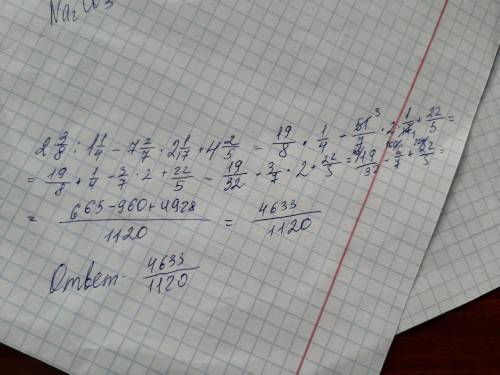 Na₂CO₃
2 3/8 : 1 1/4 - 7 2/7 · 2 1/17 + 4 2/5 = 19/8 · 1/4 - 51³/7 · 2 1/17 + 22/5 =
= 19/8 · 1/4 - 3/7 · 2 + 22/5 = 19/32 - 3/7 · 2 + 22/5 = 19/32 - 6/7 + 22/5 =
= 665-960+4928/1120 = 4633/1120
Ответ. 4633/1120